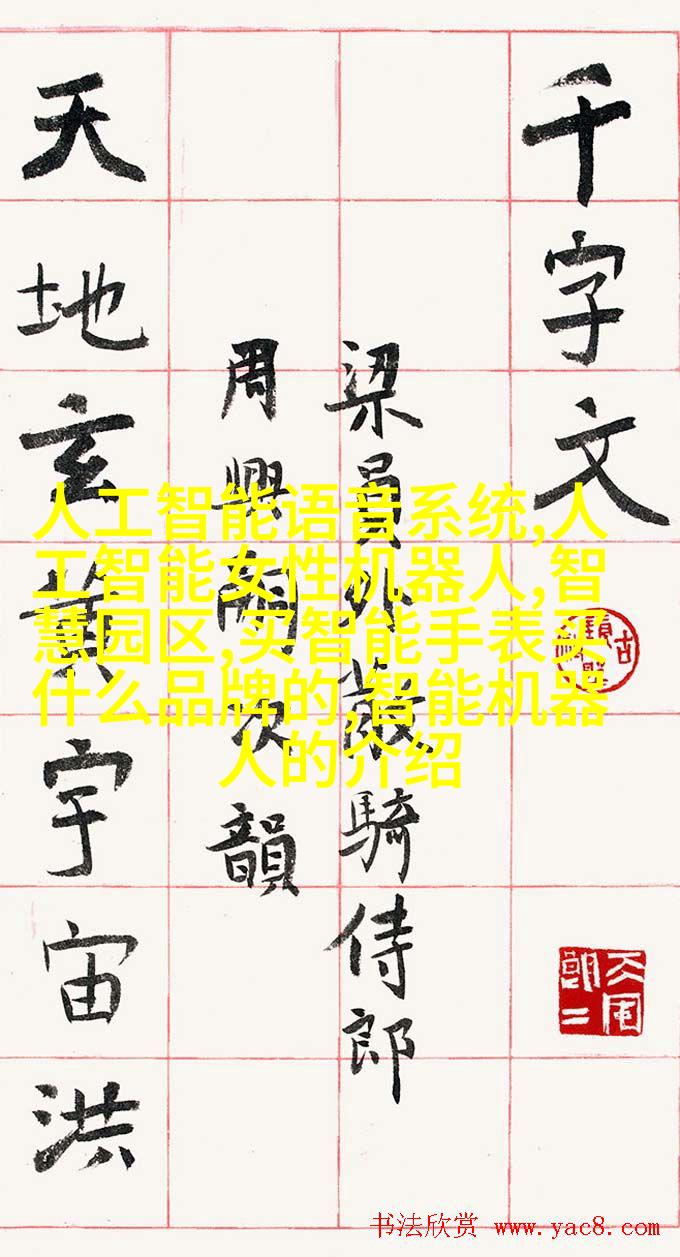 千字文
梁員外散騎侍郎
周興嗣次韻
天地玄黃宇宙洪
人工智能语音系统,人
工智能女性机器人,智
慧园区,买智能手表买
什么品牌的,智能机器
人的介绍
书法欣赏 www.yac8.com